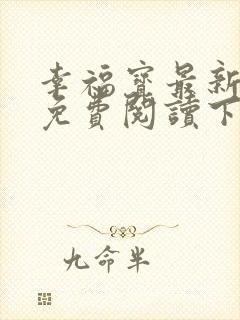 幸福寶最新
免費閱讀下
九命半